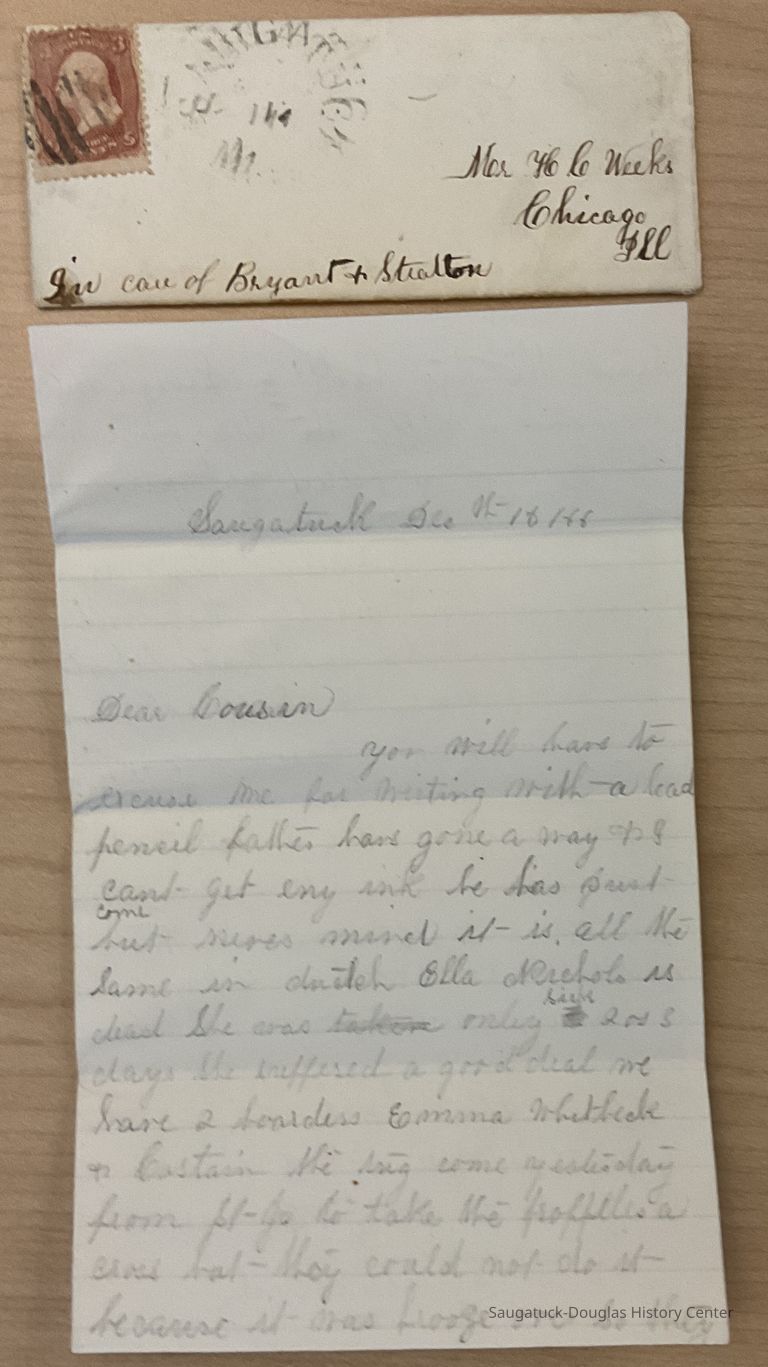 SAUGATUCK
3 3
Mer H C Weeks
Chicago
Ill
In care of Bryant & Stratton
Saugatuck Dec
Dear Cousin
you will have to
excuse me for writing with a lead
pencil father have gone a way & I
cant get eny ink he has just
come
but never mind it is all the
same in dutch Ella Nichols is
sick
dead She was taken only 2 or 3
days She suffered a good deal we
have 2 boarders Emma Whitbeck
& Castain the tug come yesterday
from St Jo to take the
cross but they could not do it
because it was frooze so they
Saugatuck-Douglas History Center